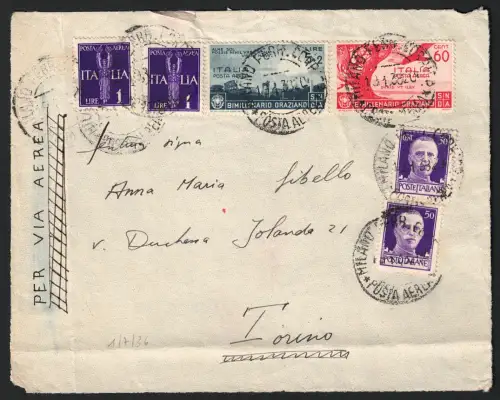 POSTA AEREA
ITALIA
LIRE 1
POSTA AEREA
ITALIA
LIRE 1
LIRE
ITALIA
POSTA AEREA
BIMILLENARIO ORAZIANO
CENT. 60
ITALIA
POSTA AEREA
BIMILLENARIO ORAZIANO
POSTA AEREA
50
POSTE ITALIANE
50
POSTE ITALIANE
MILANO
POSTA AEREA
PER VIA AEREA
Anna Maria Gibello
v. Duchessa Jolanda 21
Torino
1/7/36